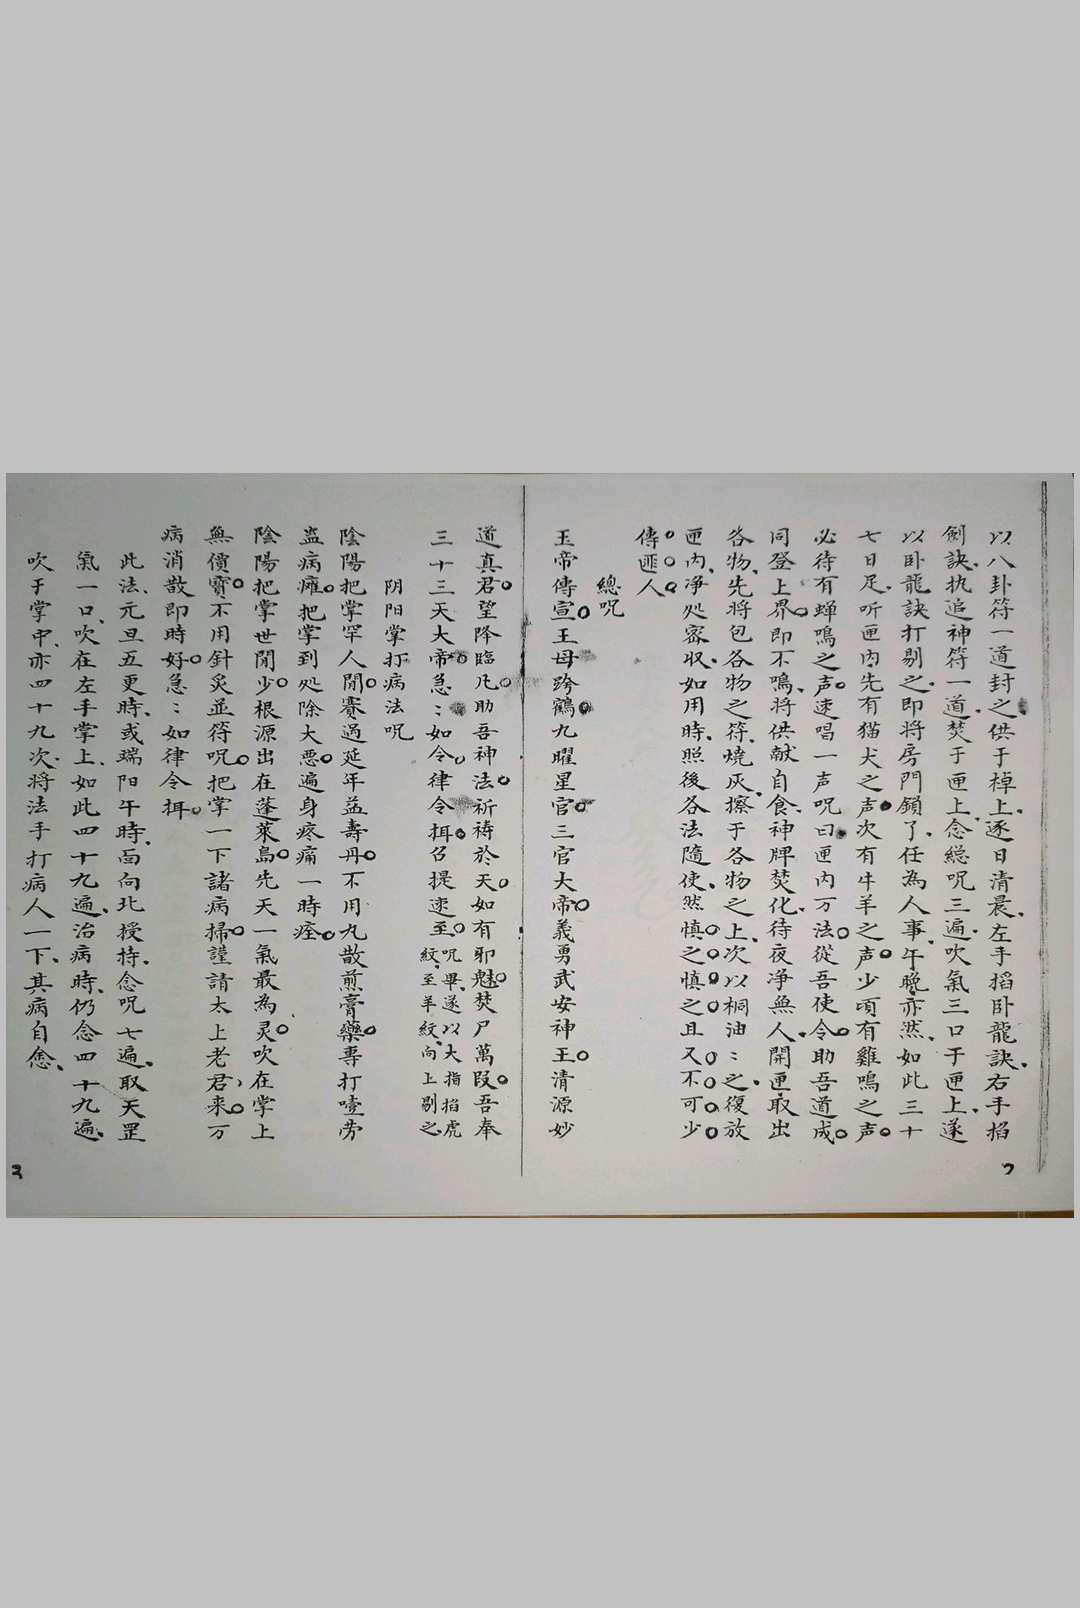 以八卦符一道封之供于棹上、逐日清晨、左手搯卧龍訣、右手搯
劍訣、执追神符一道、焚于匣上、念総咒三遍、吹氣三口于匣上、遂
以卧龍訣打剔之、即将房門鎖了、任為人事、午晚亦然、如此三十
七日足、听匣内先有猫犬之声。次有牛羊之声。少頃有雞鳴之声。
必待有蝉鳴之声。速唱一声咒曰匣内万法從吾使令。助吾道成。
同登上界。即不鳴、将供献自食、神牌焚化、待夜净無人、開匣取出
各物、先将包各物之符、燒灰、擦于各物之上、次以桐油〻之、復放
匣内、净处密収、如用時、照後各法隨使、然慎。之。慎。之。且又。不。可。少。
傳。匪。人。
總咒
玉帝傳宣。王母跨鶴。九曜星官。三官大帝。義勇武安神王。清源妙
道真君。望降臨凡。助吾神法。祈祷於天。如有耶魃。焚尸萬段。吾奉
三十三天大帝。急〻如令。律令揖。召提速至。咒畢遂以大指搯虎
紋、至羊紋、向上剔之
阴阳掌打病法咒
陰陽把掌罕人聞。賽過延年益壽丹。不用九散煎膏藥。專打噎劳
盅病癱。把掌到处除大悪。遍身疼痛一時痊。
陰陽把掌世間少。根源出在蓬萊島。先天一氣最為灵。吹在掌上
無價寶。不用針炙並符咒。把掌一下諸病掃。謹請太上老君、来。万
病消散即時好。急〻如律令揖。
此法、元旦五更時、或瑞阳午時、面向北授持、念咒七遍、取天罡
氣一口、吹在左手掌上、如此四十九遍、治病時、仍念四十九遍、
吹于掌中、亦四十九次、将法手打病人一下、其病自愈、